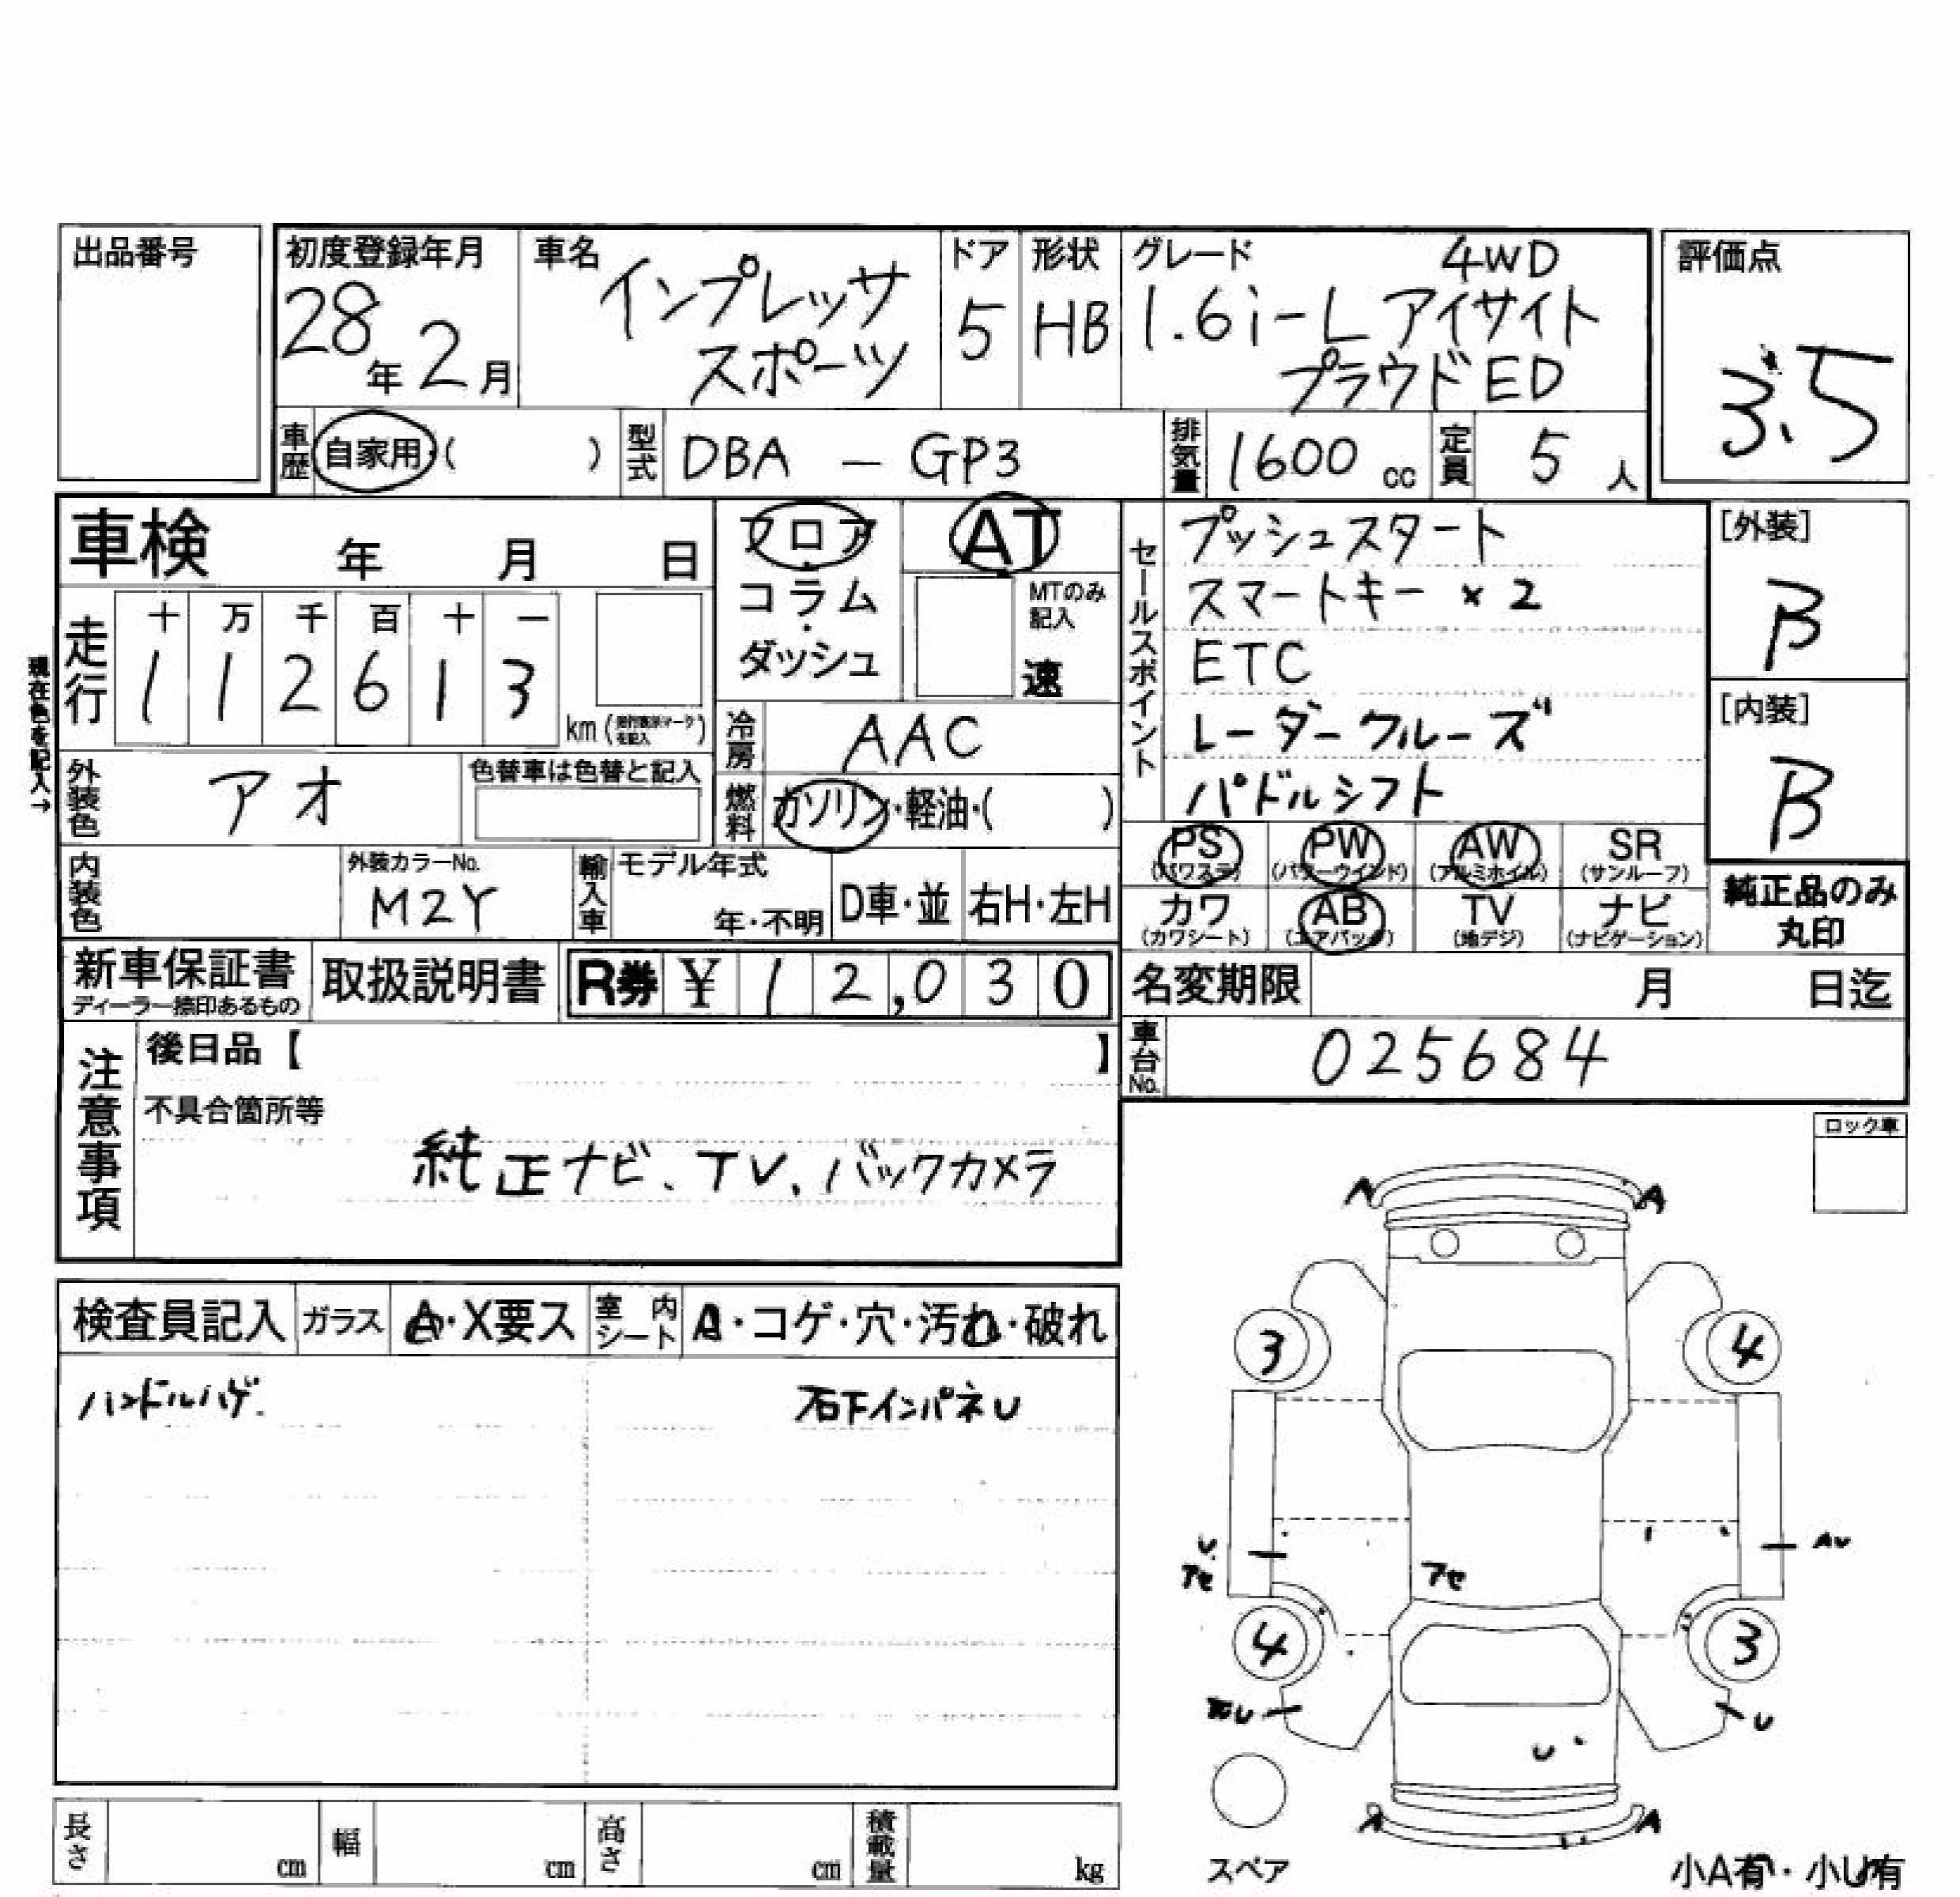 出品番号
初度登録年月
28年2月
車名
インプレッサ
スポーツ
ドア
5
形状
HB
グレード
4WD
1.6i-L アイサイト
プラウドED
評価点
3.5
車歴 自家用・( )
型式 DBA - GP3
排気量 1600 cc
定員 5 人
車検 年 月 日
走行
十 万 千 百 十 一
1 1 2 6 1 3
km (走行表示マークを記入)
現在色を記入→
フロア
・
コラム
・
ダッシュ
AT
MTのみ
記入
速
冷房 AAC
燃料 ガソリン・軽油・( )
外装色 アオ
色替車は色替と記入
内装色
外装カラーNo.
M2Y
輸入車
モデル年式
年・不明
D車・並
右H・左H
セールスポイント
プッシュスタート
スマートキー ×2
ETC
レーダークルーズ
パドルシフト
[外装]
B
[内装]
B
PS
(パワステ)
PW
(パワーウインド)
AW
(アルミホイル)
SR
(サンルーフ)
カワ
(カワシート)
AB
(エアバッグ)
TV
(地デジ)
ナビ
(ナビゲーション)
純正品のみ
丸印
新車保証書
ディーラー捺印あるもの
取扱説明書
R券 ¥ 12,030
名変期限 月 日迄
車台No. 025684
注意事項
後日品【 】
不具合箇所等
純正ナビ、TV、バックカメラ
ロック車
検査員記入
ガラス A・X要ス
室内シート A・コゲ・穴・汚れ・破れ
ハンドルハゲ.
右下インパネU
A A
3 4
U
アセ
アセ
AU
4 3
U
U
U
A A
スペア
小A有・小U有
長さ cm
幅 cm
高さ cm
積載量 kg